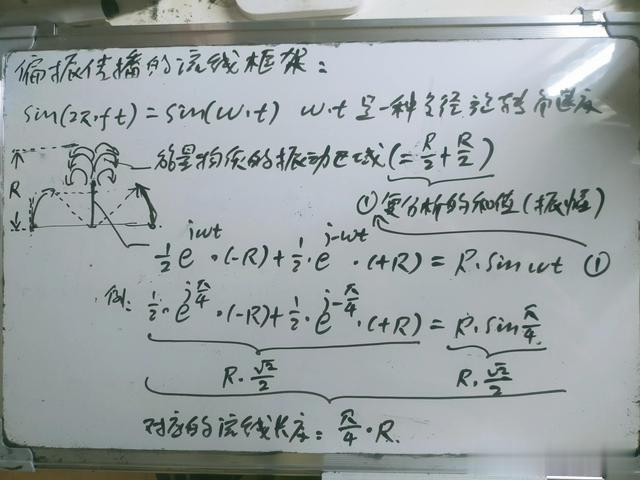 偏振传播的流线框架：
sin(2π·ft) = sin(w·t) w·t 是一种 旋转角速度
R 能量物质的振动 线 (= R/2 + R/2)
① 复分析的和值(振幅)
1/2 e^{jwt} ·(-R) + 1/2 · e^{j-wt} ·(+R) = R·sin wt ①
例: 1/2 · e^{jπ/4} ·(-R) + 1/2 · e^{j-π/4} ·(+R) = R·sin π/4
R·√2/2 R·√2/2
对应的流线长度: π/4 · R.